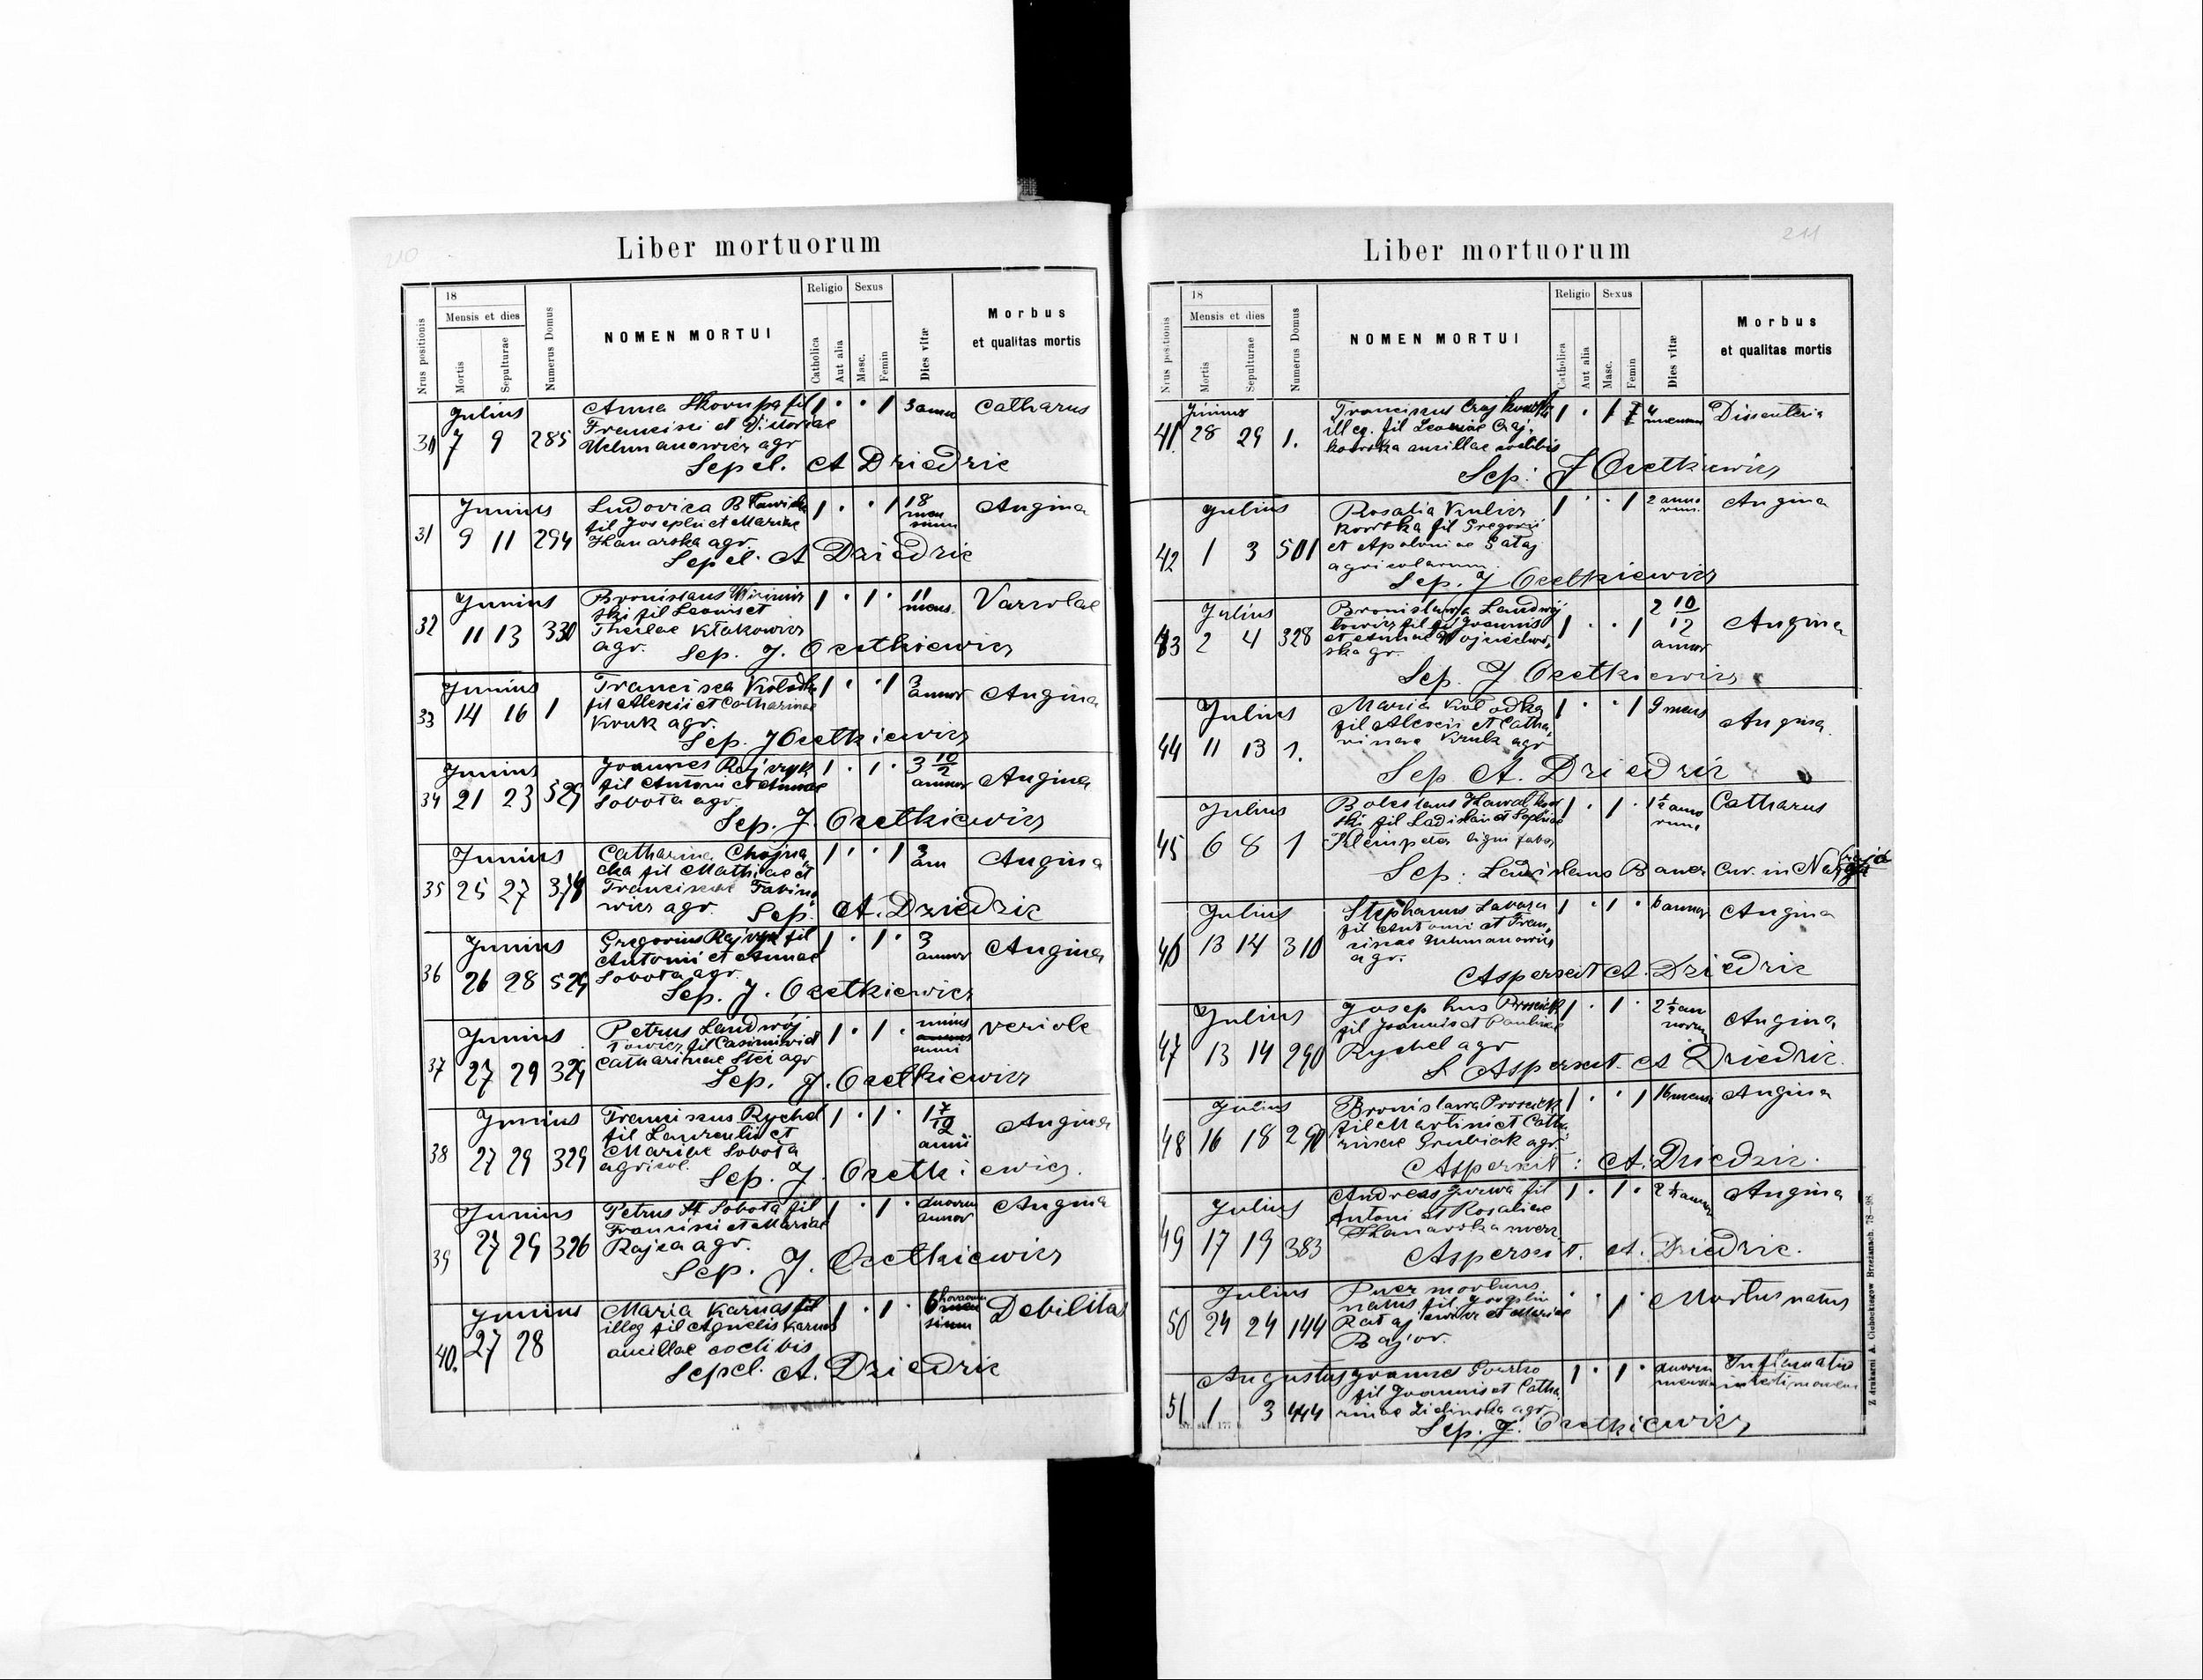 210
Liber mortuorum
Nrus positionis
18
Mensis et dies
Mortis
Sepulturae
Numerus Domus
NOMEN MORTUI
Religio
Catholica
Aut alia
Sexus
Masc.
Femin
Dies vitæ
Morbus
et qualitas mortis
Julius
30 7 9 285
Anna Skorupa fil
Francisci et Victoriae
Uchmanowicz agr
1 · · 1 3 annor Catharus
Sepel. A Dziedzic
Junius
31 9 11 294
Ludovica
fil Josephi et Mariae
Skanarska agr.
1 · · 1 18
men
sium
Angina
Sepel. A Dziedzic
Junius
32 11 13 330
Bronislaus
ski fil Leonis et
Theclae Kłakowicz
agr.
1 · 1 · 11
mens. Variolae
Sep. J. Ocetkiewicz
Junius
33 14 16 1
Francisca Kołodka
fil Alexii et Catharinae
Kruk agr.
1 · · 1 3
annor Angina
Sep. J Ocetkiewicz
Junius
34 21 23 529
Joannes Rajczyk
fil Antoni et Annae
Sobota agr.
1 · 1 · 3 10/2
annor Angina
Sep. J. Ocetkiewicz
Junius
35 25 27 378
Catharina Chojna
cka fil Mathiae et
Franciscae
wicz agr.
1 · · 1 3
ann Angina
Sep. A. Dziedzic
Junius
36 26 28 529
Gregorius Rajczyk fil
Antonii et Annae
Sobota agr.
1 · 1 · 3
annor Angina
Sep. J. Ocetkiewicz
Junius
37 27 29 329
Petrus Landwój
towicz fil Casimiri et
Catharinae Stei agr
1 · 1 · unius
anni
Variole
Sep. J. Ocetkiewicz
Junius
38 27 29 329
Franciscus Rychel
fil Laurentii et
Mariae Sobota
agricol.
1 · 1 · 1 7/12
annii Angina
Sep. J. Ocetkiewicz.
Junius
39 27 29 326
Petrus Sobota fil
Francisci et Mariae
Rajca agr.
1 · 1 · duorum
annor Angina
Sep. J. Ocetkiewicz
Junius
40. 27 28
Maria Karnas fil
illeg fil Agnetis Karnas
ancillae coelibis
1 · 1 · 6 horarum
Debilitas
Sepel. A. Dziedzic
211
Liber mortuorum
Nrus positionis
18
Mensis et dies
Mortis
Sepulturae
Numerus Domus
NOMEN MORTUI
Religio
Catholica
Aut alia
Sexus
Masc.
Femin
Dies vitæ
Morbus
et qualitas mortis
Junius
41. 28 29 1.
Franciscus
illeg. fil Leoniae Czaj.
kowska ancillae coelibis
1 · 1 4
Dissenteria
Sep: J Ocetkiewicz
Julius
42 1 3 501
Rosalia Kulicz
kowska fil Gregorii
et Apoloniae Sataj
agricolarum.
1 · · 1 2 anno
rum. Angina
Sep. J Ocetkiewicz
Julius
43 2 4 328
Bronislawa Landwój
towicz fil Joannis
et Annae
ska gr.
1 · · 1 2 10
12
annor Angina
Sep. J Ocetkiewicz
Julius
44 11 13 1.
Maria Kołodka
fil Alexii et Catha
rinae Kruk agr
1 · · 1 9 mens Angina.
Sep A. Dziedzic
Julius
45 6 8 1
Boleslaus
ski fil Ladislai et Sophiae
Kleinpeter ligni faber
1 · 1 · 1 1/2 anno
rum Catharus
Sep: Ladislaus Bauer Cur. in
Julius
46 13 14 310
Stephanus
fil Antoni et Fran,
ciscae Uchmanowicz
agr.
1 · 1 · 6 annor Angina
Aspersit A. Dziedzic
Julius
47 13 14 290
Josephus
fil Joannis et Paulinae
Rychel agr
1 · 1 · 2 1/2 an
norum Angina
S Aspersit. A Dziedzic.
Julius
48 16 18 290
Bronislawa
fil Martini et Catha
rinae Grubiak agr
1 · · 1 16 mens Angina
Aspersit: A. Dziedzic.
Julius
49 17 19 383
Andreas fil
Antoni et Rosaliae
Skanarska
1 · 1 · 2 1/2 annor Angina
Aspersit. A. Dziedzic.
Julius
50 24 24 144
Puer mortuus
natus fil Josephi
et Mariae
Bajor.
· · 1 · Mortus natus
Augustus
51 1 3 444
Joannes
fil Joannis et Catha
rinae Zielinska agr
1 · 1 · duorum
Inflamatio
Sep. J. Ocetkiewicz
Z drukarni A. Cichockiegow Brzeżanach. 78—98.